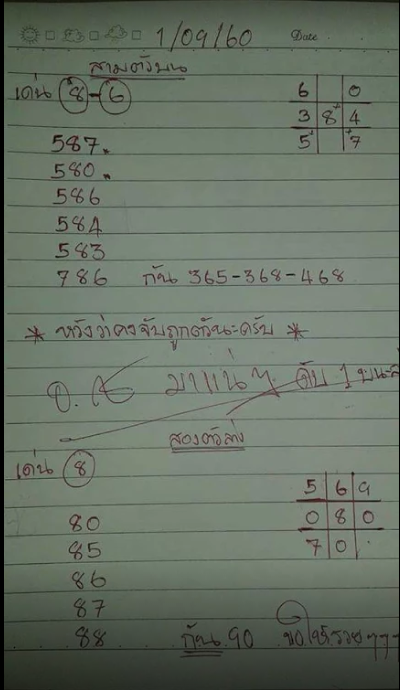 1/09/60 Date
สามตัวบน
เด่น 8-6
6 0
3 8 4
5 7
587.
580.
586
584
583
786 กัน 365-368-468
* หวังว่าคงจับถูกตัวนะครับ *
มาแน่ๆ ดับ 1 บน
สองตัวล่าง
เด่น 8
5 6 9
0 8 0
7 0 .
80
85
86
87
88 กัน 90 ขอให้รวยๆๆ